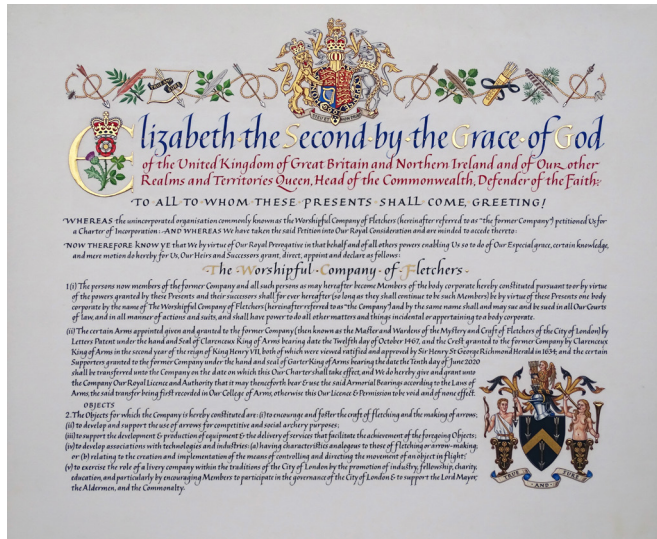 Elizabeth the Second by the Grace of God
of the United Kingdom of Great Britain and Northern Ireland and of Our other
Realms and Territories Queen, Head of the Commonwealth, Defender of the Faith:
TO ALL TO WHOM THESE PRESENTS SHALL COME, GREETING!
WHEREAS the unincorporated organisation commonly known as the Worshipful Company of Fletchers (hereinafter referred to as "the former Company") petitioned Us for
a Charter of Incorporation: AND WHEREAS We have taken the said Petition into Our Royal Consideration and are minded to accede thereto:
NOW THEREFORE KNOW YE that We by virtue of Our Royal Prerogative in that behalf and of all others powers enabling Us so to do of Our Especial grace, certain knowledge,
and mere motion do hereby for Us, Our Heirs and Successors grant, direct, appoint and declare as follows:
The Worshipful Company of Fletchers
1(i) The persons now members of the former Company and all such persons as may hereafter become Members of the body corporate hereby constituted pursuant to or by virtue
of the powers granted by these Presents and their successors shall for ever hereafter (so long as they shall continue to be such Members) be by virtue of these Presents one body
corporate by the name of The Worshipful Company of Fletchers (hereinafter referred to as "the Company") and by the same name shall and may sue and be sued in all Our Courts
of law, and in all manner of actions and suits, and shall have power to do all other matters and things incidental or appertaining to a body corporate.
(ii) The certain Arms appointed given and granted to the former Company (then known as the Master and Wardens of the Mystery and Craft of Fletchers of the City of London) by
Letters Patent under the hand and Seal of Clarenceux King of Arms bearing date the Twelfth day of October 1467, and the Crest granted to the former Company by Clarenceux
King of Arms in the second year of the reign of King Henry VII, both of which were viewed ratified and approved by Sir Henry St George Richmond Herald in 1634; and the certain
Supporters granted to the former Company under the hand and seal of Garter King of Arms bearing the date the Tenth day of June 2020
shall be transferred unto the Company on the date on which this Our Charter shall take effect, and We do hereby give and grant unto
the Company Our Royal Licence and Authority that it may thenceforth bear & use the said Armorial Bearings according to the Laws of
Arms, the said transfer being first recorded in Our College of Arms, otherwise this Our Licence & Permission to be void and of none effect.
OBJECTS
2. The Objects for which the Company is hereby constituted are: (i) to encourage and foster the craft of fletching and the making of arrows;
(ii) to develop and support the use of arrows for competitive and social archery purposes;
(iii) to support the development & production of equipment & the delivery of services that facilitate the achievement of the foregoing Objects;
(iv) to develop associations with technologies and industries: (a) having characteristics analogous to those of fletching or arrow-making,
or (b) relating to the creation and implementation of the means of controlling and directing the movement of an object in flight;
(v) to exercise the role of a livery company within the traditions of the City of London by the promotion of industry, fellowship, charity,
education, and particularly by encouraging Members to participate in the governance of the City of London & to support the Lord Mayor,
the Aldermen, and the Commonalty.
TRUE AND SURE